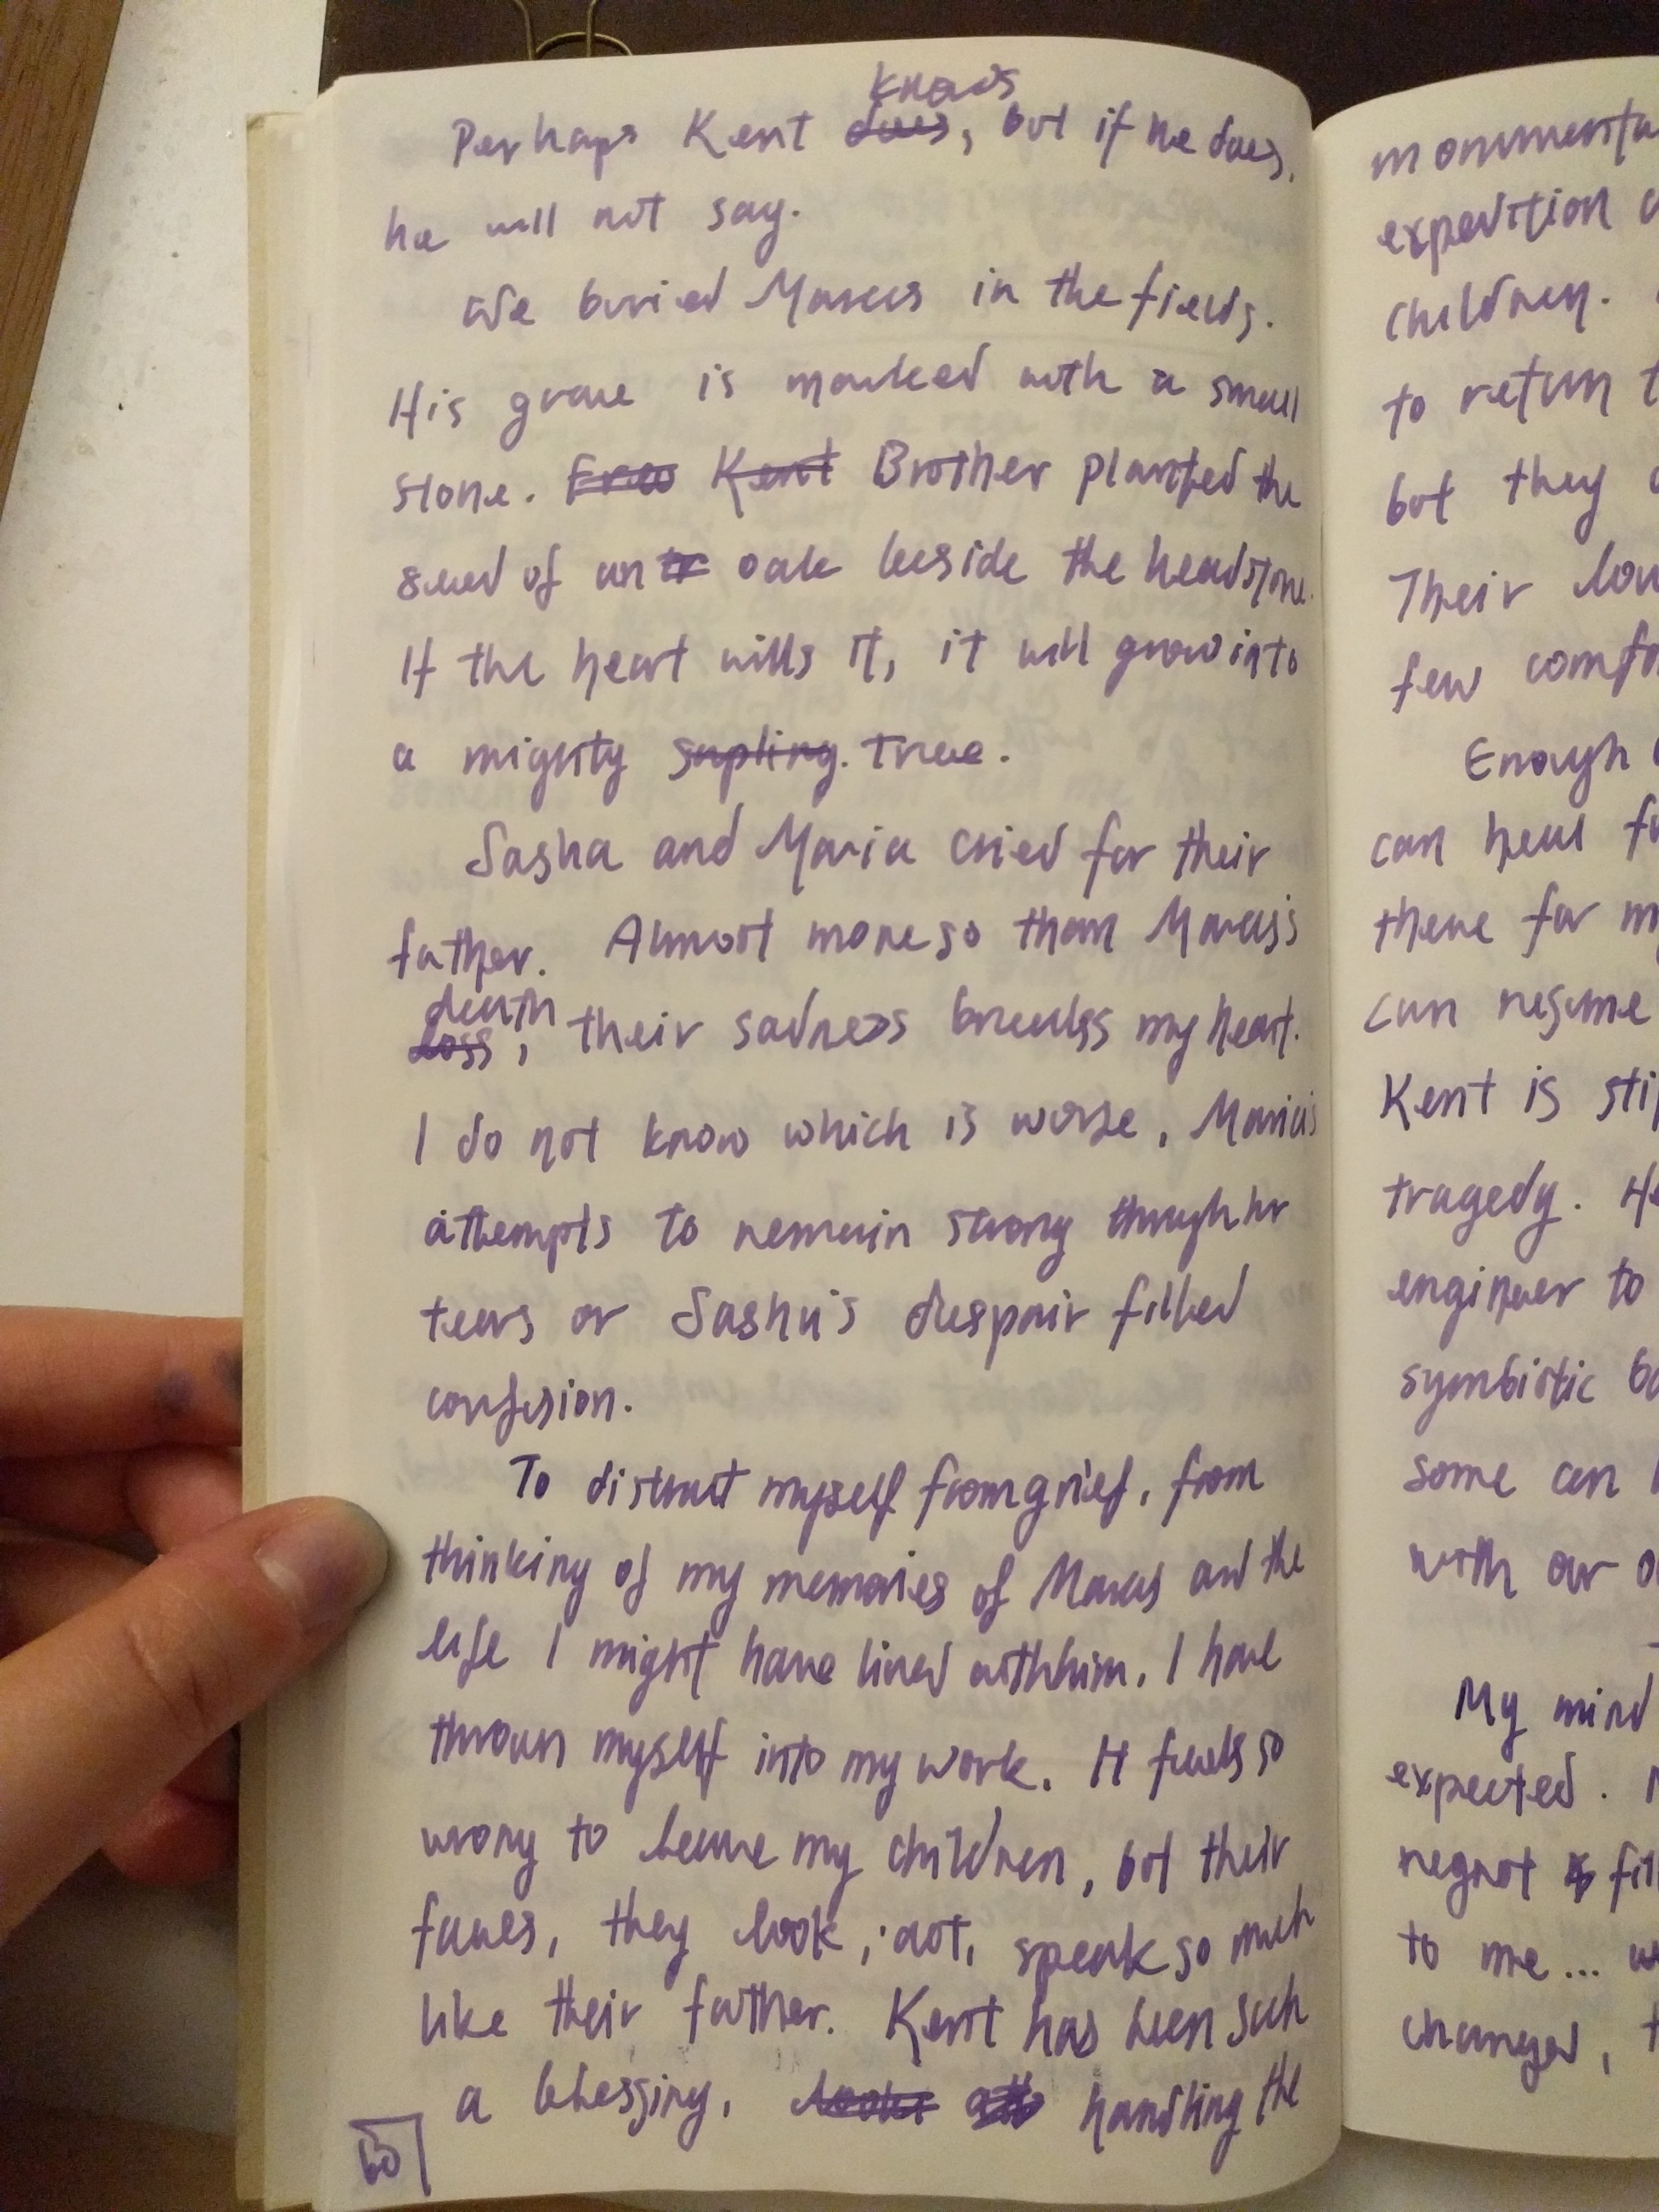 knows
Perhaps Kent does, but if he does,
he will not say.
We buried Marcus in the fields.
His grave is marked with a small
stone. Kent Brother planted the
seed of an tr oak beside the headstone.
If the heart wills it, it will grow into
a mighty sapling. Tree.
Sasha and Maria cried for their
father. Almost more so than Marcus's
death
loss, their sadness breaks my heart.
I do not know which is worse, Maria's
attempts to remain strong through her
tears or Sasha's despair filled
confusion.
To distract myself from grief, from
thinking of my memories of Marcus and the
life I might have lived with him, I have
thrown myself into my work. It feels so
wrong to leave my children, but their
faces, they look, act, speak so much
like their father. Kent has been such
a blessing, handling the
60
momenta
expedition
children.
to return t
but they
Their lov
few comfo
Enough
can hear f
there for m
can resume
Kent is sti
tragedy. He
engineer to
symbiotic b
some can
with our o
My mind
expected.
regret fil
to me... w
changed, t